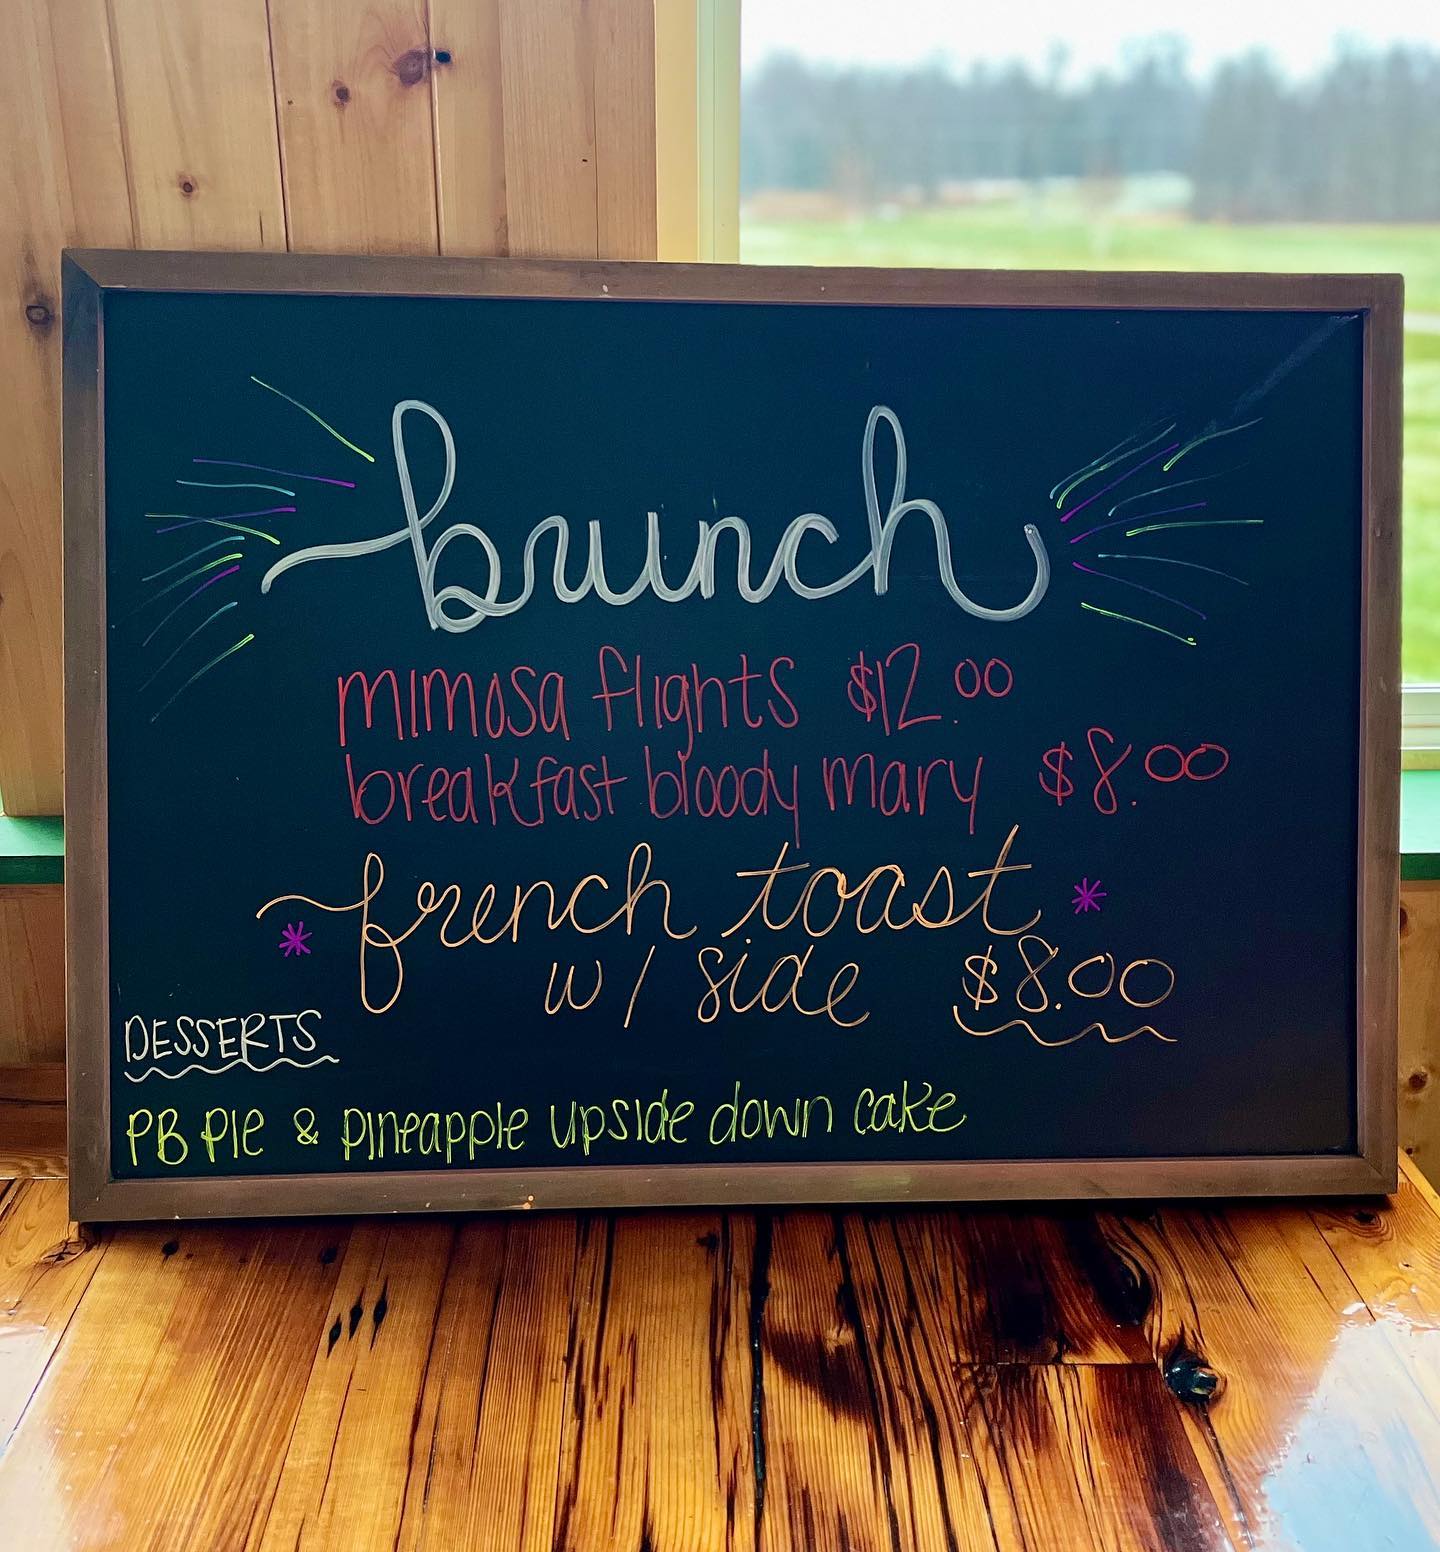 brunch
mimosa flights $12.00
breakfast bloody mary $8.00
* french toast *
w/ side $8.00
DESSERTS
PB PIE & pineapple upside down cake